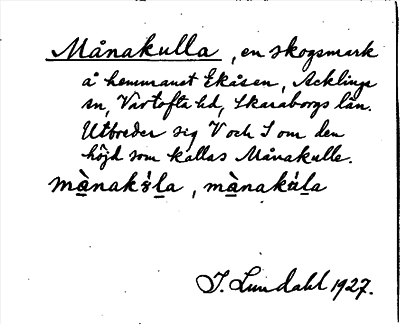 Månakulla, en skogsmark
å hemmanet Ekåsen, Acklinga
sn, Vartofta hd, Skaraborgs län.
Utbreder sig V och S om den
höjd som kallas Månakulle.
J. Lundahl 1927.